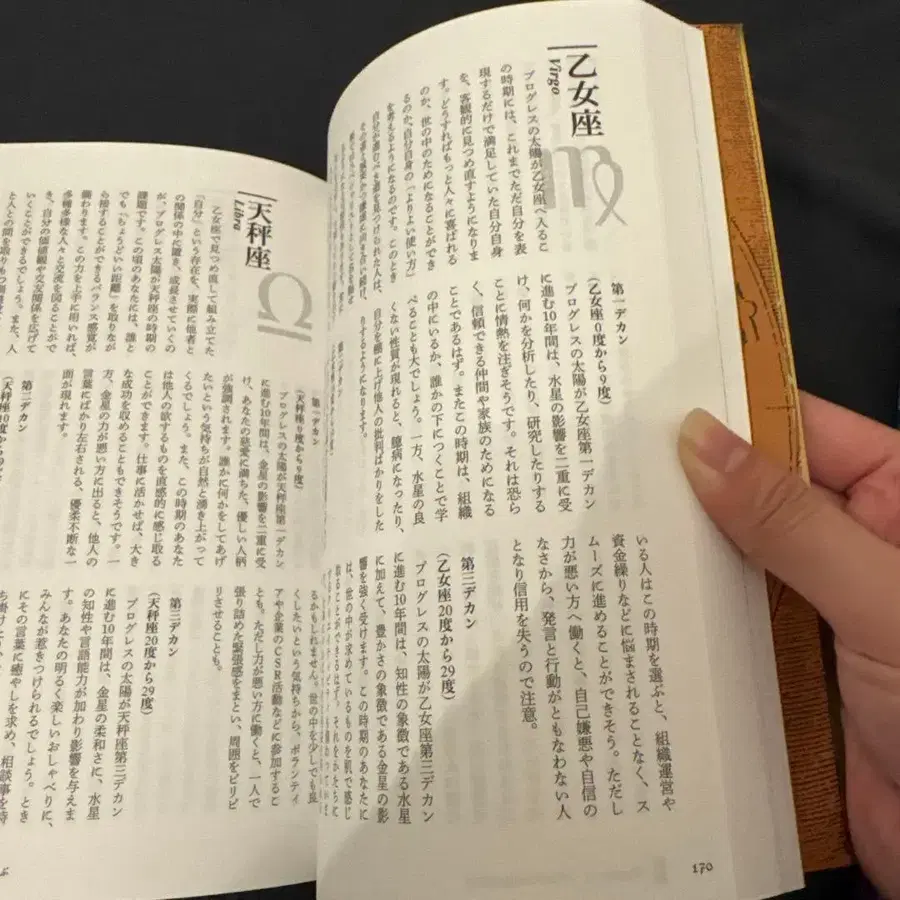 乙女座
Virgo
プログレスの太陽が乙女座へ入るこ
の時期には、これまでただ自分を表
現するだけで満足していた自分自身
を、客観的に見つめ直すようになりま
す。どうすればもっと人々に喜ばれる
のか、世の中のためになることができ
るのか、自分自身の「よりよい使い方」
を考えるようになるのです。このとき
自分が進むべき道を見つけられた人は、
第一デカン
(乙女座0度から9度)
プログレスの太陽が乙女座第一デカン
に進む10年間は、水星の影響を二重に受
け、何かを分析したり、研究したりする
ことに情熱を注ぎそうです。それは恐ら
く、信頼できる仲間や家族のためになる
ことであるはず。またこの時期は、組織
の中にいるか、誰かの下につくことで学
べることも大でしょう。一方、水星の良
くない性質が現れると、臆病になったり、
自分を棚に上げ他人の批判ばかりをした
りするようになります。
第二デカン
いる人はこの時期を選ぶと、組織運営や
資金繰りなどに悩まされることなく、ス
ムーズに進めることができそう。ただし
力が悪い方へ働くと、自己嫌悪や自信の
なさから、発言と行動がともなわない人
となり信用を失うので注意。
第三デカン
(乙女座20度から29度)
プログレスの太陽が乙女座第三デカン
に進む10年間は、知性の象徴である水星
に加えて、豊かさの象徴である金星の影
響を強く受けます。この時期のあなたに
は、世の中が求めているものを肌で感じ
取ることができるはず。それをかたちに
170
るかもしれません。世の中を少しでも良
くしたいという気持ちから、ボランティ
アや企業のCSR活動などに参加するこ
とも。ただし力が悪い方に働くと、一人で
張り詰めた緊張感をまとい、周囲をピリピ
リさせることも。
天秤座
Libra
乙女座で見つめ直して組み立てた
「自分」という存在を、実際に他者と
の関係の中に置き、成長させていくの
が、プログレス太陽が天秤座の時期の
課題です。この頃のあなたには、誰と
でも「ちょうどいい距離」を取りなが
ら接することができるバランス感覚が
備わります。この力を上手に用いれば、
多種多様な人々と交流を図ることがで
き、自分の価値観や交友関係を広げて
いくことができるでしょう。また、人
と人との間を取りもつ
第一デカン
(天秤座0度から9度)
プログレスの太陽が天秤座第一デカン
に進む10年間は、金星の影響を二重に受
け、あなたの慈愛に満ちた、優しい人柄
が強調されます。誰かに何かをしてあげ
たいという気持ちが自然と湧き上がって
くるでしょう。また、この時期のあなた
は他人の欲するものを直感的に感じ取る
ことができます。仕事に活かせば、大き
な成功を収めることもできそうです。一
方、金星の力が悪い方に出ると、他人の
言葉にばかり左右される、優柔不断な一
面が現れます。
第二デカン
第三デカン
(天秤座20度から29度)
プログレスの太陽が天秤座第三デカン
に進む10年間は、金星の柔和さに、水星
の知性や言語能力が加わり影響を与えま
す。あなたの明るく楽しいおしゃべりに、
みんなが惹きつけられるでしょう。とき
にその言葉に癒やしを求め、相談事を持